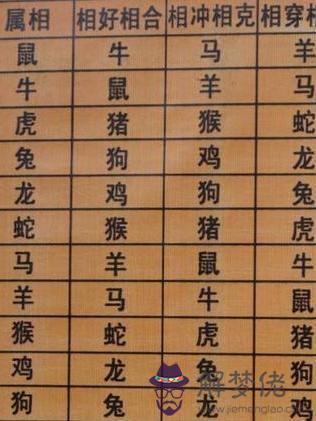 属相 相好相合 相冲相克 相穿相
鼠 牛 马 羊
牛 鼠 羊 马
虎 猪 猴 蛇
兔 狗 鸡 龙
龙 鸡 狗 兔
蛇 猴 猪 虎
马 羊 鼠 牛
羊 马 牛 鼠
猴 蛇 虎 猪
鸡 龙 兔 狗
狗 兔 龙
解梦佬
www.jiemenglao.com